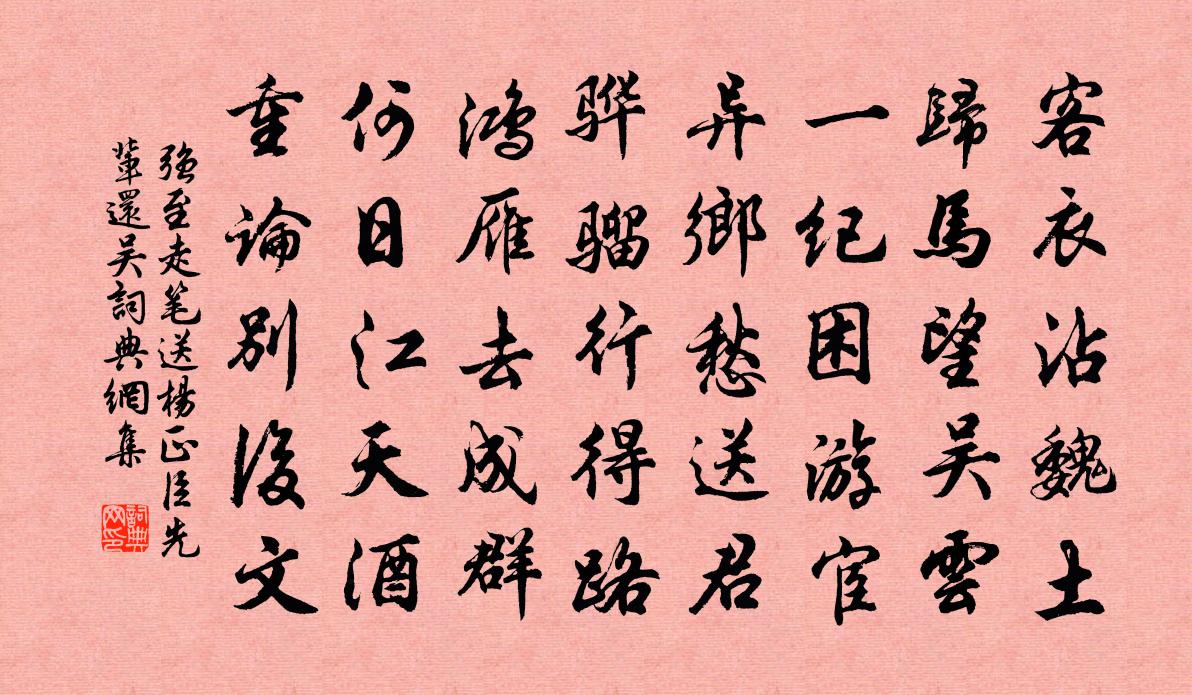 客衣沾魏土
歸馬望吴雲
一纪困游宦
异鄉愁送君
骅骝行得路
鸿雁去成群
何日江天酒
重論別後文
強至走笔送楊正臣先
輩還吴詞典網集
詞典网印